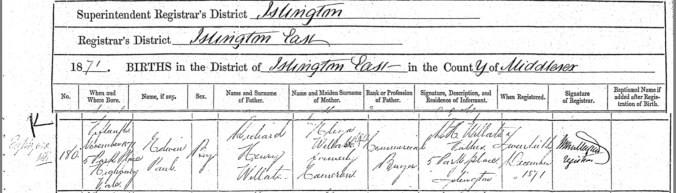 Superintendent Registrar's District Islington
Registrar's District Islington East
1871. BIRTHS in the District of Islington East in the County of Middlesex
No. When and Where Born. Name, if any. Sex. Name and Surname of Father. Name and Maiden Surname of Mother. Rank or Profession of Father. Signature, Description, and Residence of Informant. When Registered. Signature of Registrar. Baptismal Name if added after Registration of Birth.
K
November 1871 5 Park Place Highbury Park Edwin Paul Boy Richard Henry Willats Willats formerly Cameron Commercial Buyer Willats Father 5 Park place Islington December 1871 Registrar